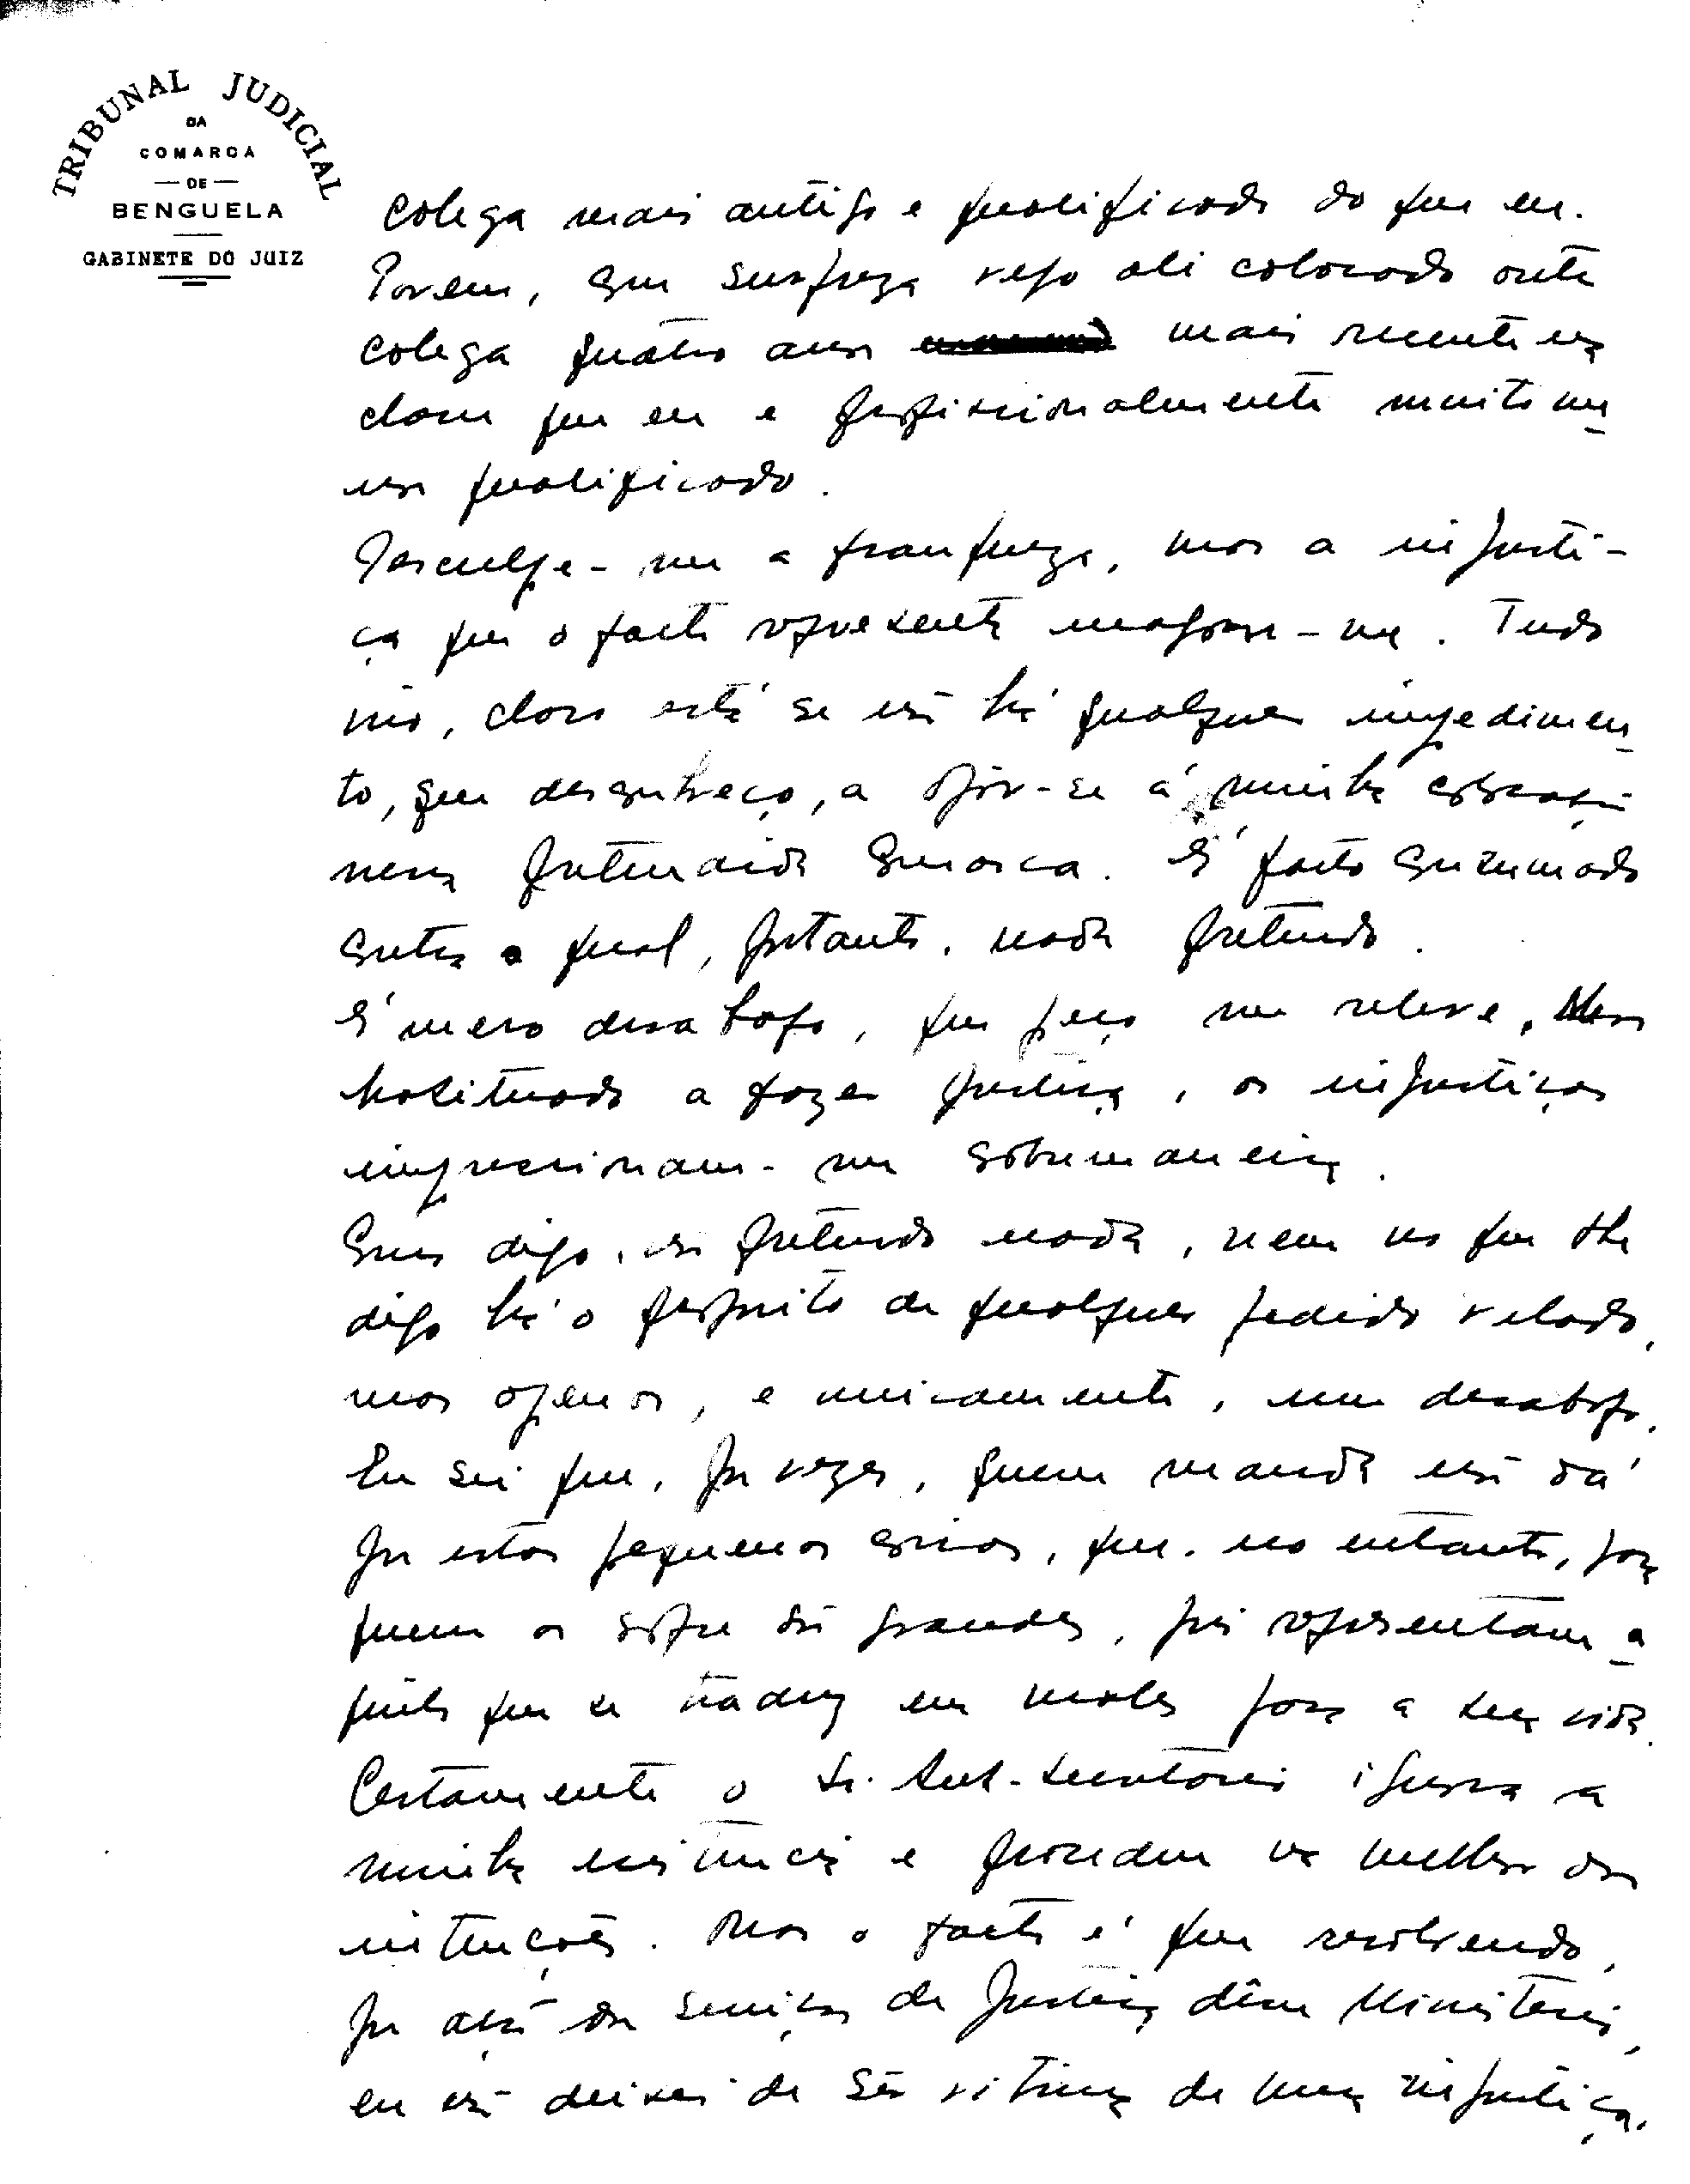 TRIBUNAL JUDICIAL
DA
COMARCA
— DE —
BENGUELA
GABINETE DO JUIZ
colega mais antigo e qualificado do que eu.
Porém, com surpreza vejo ali colocado outro
colega quatro anos mais recente na
classe que eu e profissionalmente muito me
nos qualificado.
Desculpe-me a franqueza, mas a injusti-
ça que o facto representa magoou-me. Tudo
isso, claro está se não há qualquer impedimen
to, que desconheço, a opôr-se á minha colocação
nessa pretendida comarca. É facto consumado
contra o qual, portanto, nada pretendo.
É mero desabafo, que peço me releve, Mas
habituado a fazer justiça, as injustiças
impressionam-me sobremaneira.
Como digo, não pretendo nada, nem no que lhe
digo há o propósito de qualquer pedido velado,
mas apenas, e unicamente, um desabafo.
Eu sei que, por vezes, quem manda não dá
por estas pequenas coisas, que, no entanto, para
quem as sofre são grandes, pois representam a
quilo que se traduz em males para a sua vida.
Certamente o Sr. Sub-Secretário ignora a
minha existência e procedeu na melhor das
intenções. Mas o facto é que resolvendo,
por acção dos serviços de Justiça dêsse Ministério,
eu não deixei de ser vitima de uma injustiça.